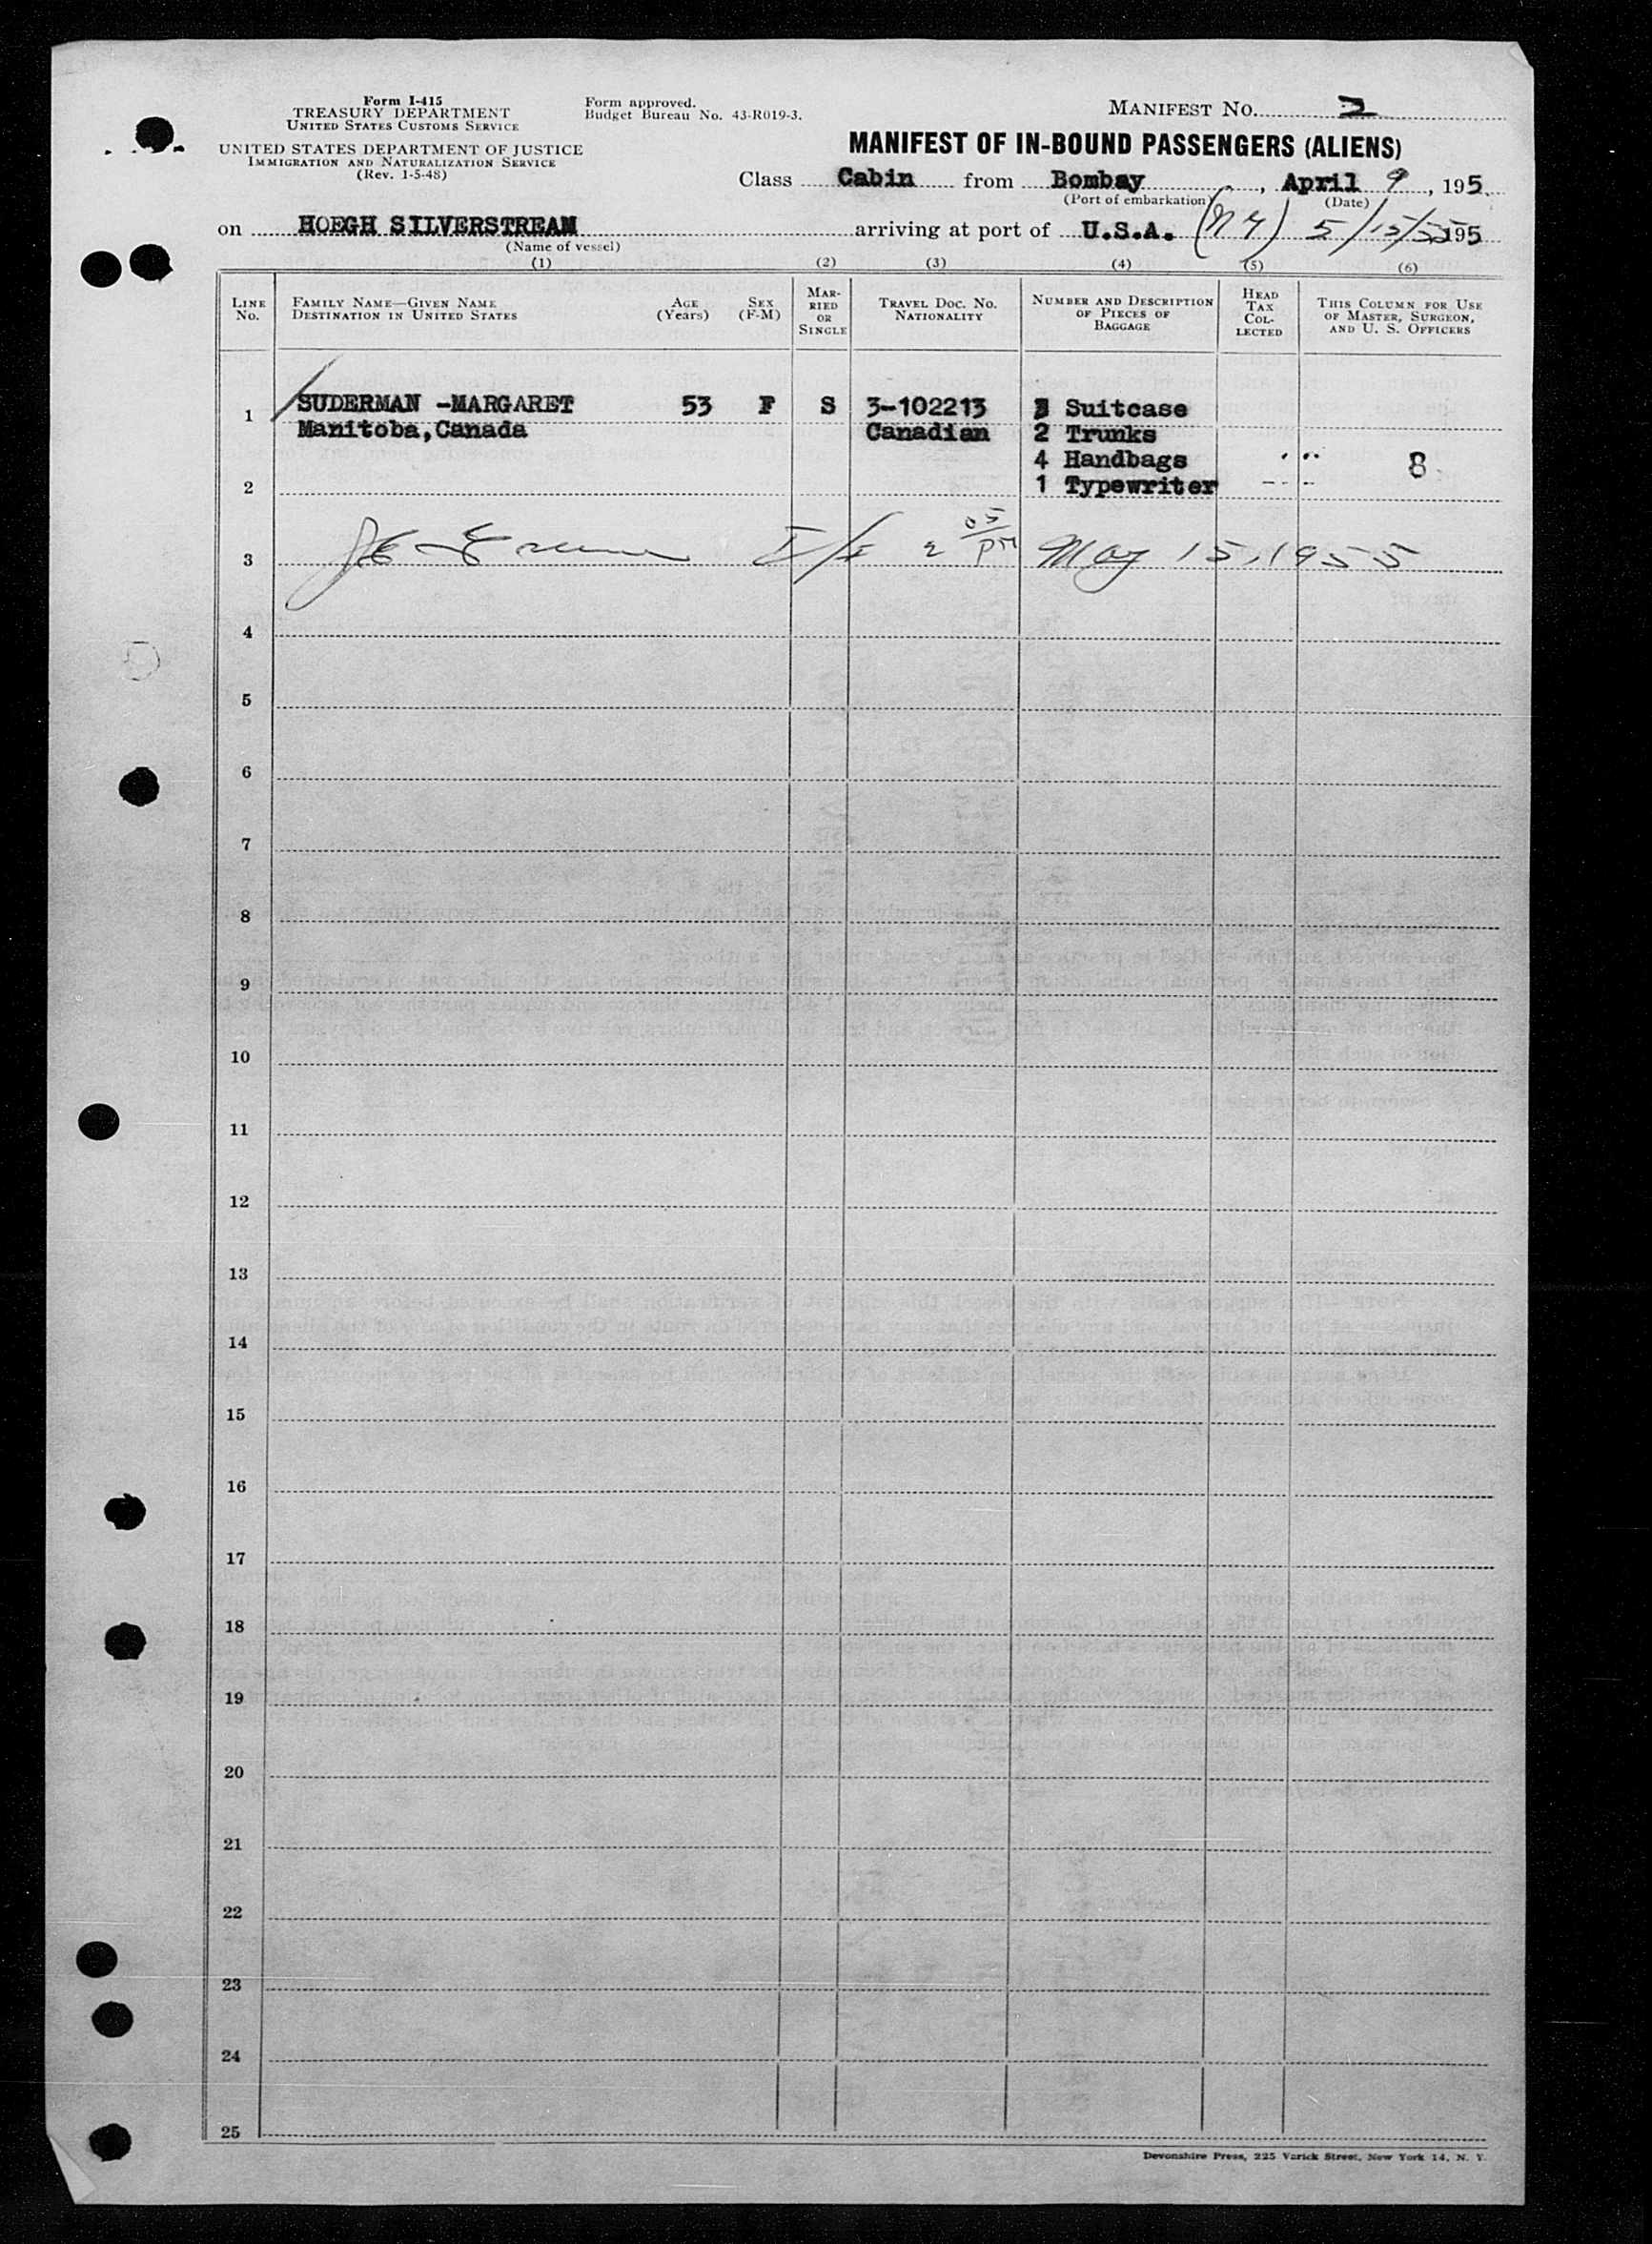 Form I-415
TREASURY DEPARTMENT
UNITED STATES CUSTOMS SERVICE
UNITED STATES DEPARTMENT OF JUSTICE
IMMIGRATION AND NATURALIZATION SERVICE
(Rev. 1-5-48)
Form approved.
Budget Bureau No. 43-R019-3.
MANIFEST NO. 2
MANIFEST OF IN-BOUND PASSENGERS (ALIENS)
Class Cabin from Bombay, April 9, 195
(Port of embarkation) (Date)
on HOEGH SILVERSTREAM arriving at port of U.S.A. (N Y) 5/15/55 195
(Name of vessel)
(1) (2) (3) (4) (5) (6)
LINE NO.
FAMILY NAME—GIVEN NAME
DESTINATION IN UNITED STATES
AGE (YEARS)
SEX (F-M)
MARRIED OR SINGLE
TRAVEL DOC. NO.
NATIONALITY
NUMBER AND DESCRIPTION OF PIECES OF BAGGAGE
HEAD TAX COLLECTED
THIS COLUMN FOR USE OF MASTER, SURGEON, AND U. S. OFFICERS
1 SUDERMAN -MARGARET 53 F S 3-102213 Suitcase
Manitoba,Canada Canadian 2 Trunks
4 Handbags 8
2 1 Typewriter
3 2 05/PM May 15, 1955
4
5
6
7
8
9
10
11
12
13
14
15
16
17
18
19
20
21
22
23
24
25
Devonshire Press, 225 Varick Street, New York 14, N. Y.